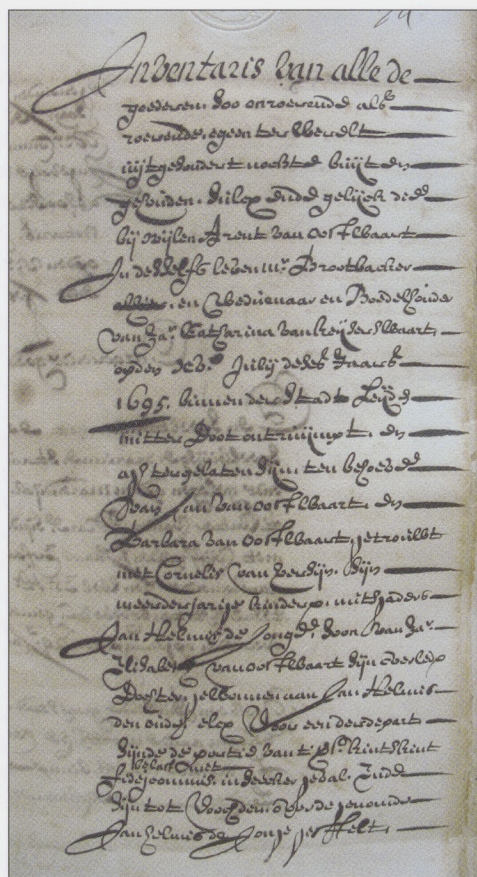 Inventaris van alle de
goederen, soo onroerende als
roerende, egeen ter werelt
uijtgesondert nochte buijten
gesonden, sulcx ende gelijck die
bij wijlen Arent van Oostwaart
In sijn leven mr. Grootbacker
en weduwenaar en Boedelhouder
van Za. Catharina van Reijderswaart,
op den Julij deses Jaars
1695. binnen der stadt Leijden
mitter Doot ontruijmt, en
agtergelaten sijn ten behoeve
van Jan van Oostwaart, en
Barbara van Oostwaart, getrouwt
met Cornelis van Versijn, sijn
meerderjarige kinderen, mitsgaders
Jan Helmis de Jonge, soon van Za.
Elisabeth van Oostwaart sijn overleden
Dogter, gewonnen aan Jan Helmis
den oude, elcx voor een derdepart
sijnde de portie van 't kintskint
belast met
fidejcommis, in seecker geval. Ende
sijn tot Voochden over de genoemde
Jan Helmis de Jonge gestelt,